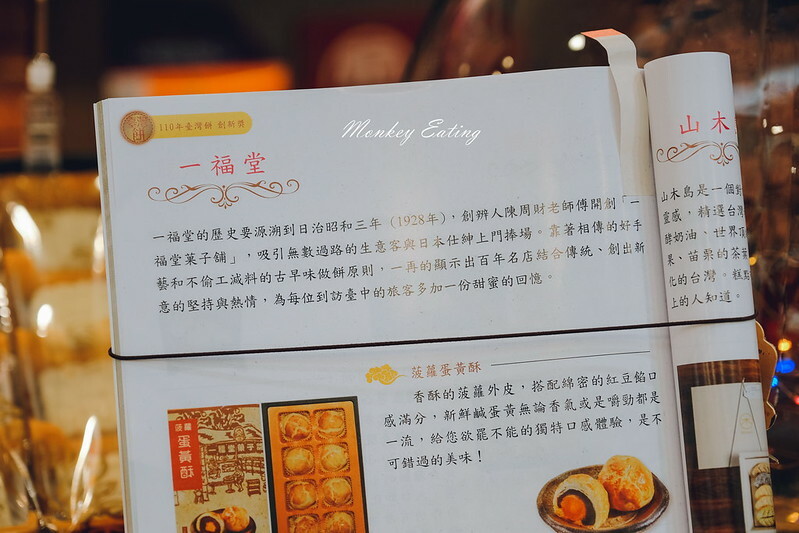 110年臺灣餅 創新獎
Monkey Eating
一福堂
一福堂的歷史要源溯到日治昭和三年（1928年），創辦人陳周財老師傅開創「一
福堂菓子舖」，吸引無數過路的生意客與日本仕紳上門捧場。靠著相傳的好手
藝和不偷工減料的古早味做餅原則，一再的顯示出百年名店結合傳統、創出新
意的堅持與熱情，為每位到訪臺中的旅客多加一份甜蜜的回憶。
菠蘿蛋黃酥
香酥的菠蘿外皮，搭配綿密的紅豆餡口
感滿分，新鮮鹹蛋黃無論香氣或是嚼勁都是
一流，給您欲罷不能的獨特口感體驗，是不
可錯過的美味！
菠蘿
蛋黃酥
一福堂菓子
山木
山木島是一個
靈感，精選台灣
鮮奶油、世界頂
果、苗栗的茶葉
化的台灣。糕點
上的人知道。